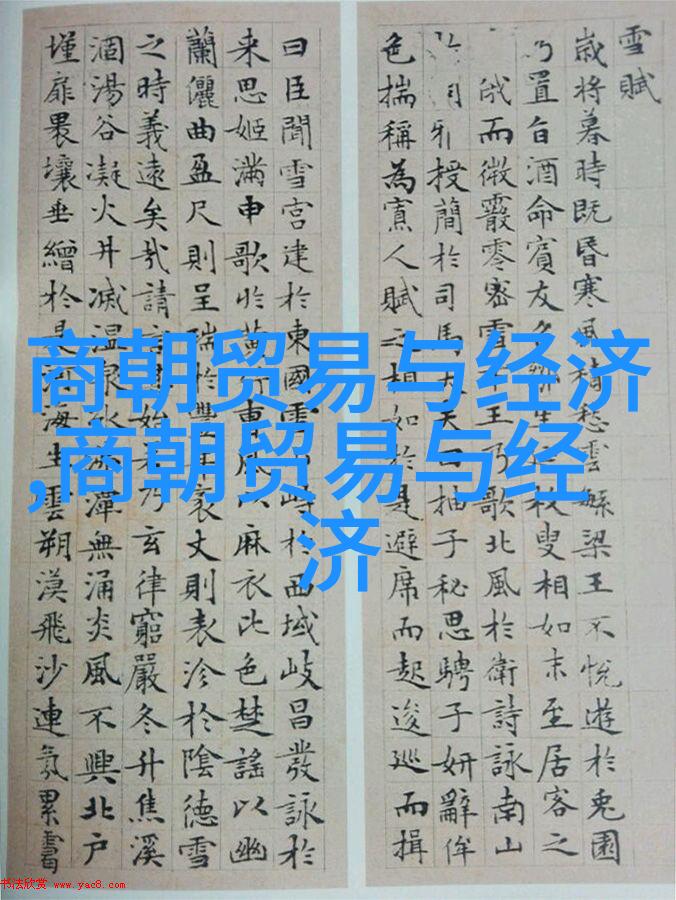 雪賦
歲將暮時既昏寒風積愁雲繇梁王不悅遊於兔園
乃置旨酒命賓友生枚叟相如末至居客之
俄而微霰零密雪下王乃歌北風於衛詩詠南山
授簡於司馬大夫曰抽子秘思騁子妍辭侔
色揣稱為寡人賦之相如於是避席而起逡巡而揖
曰臣聞雪宮建於東國雪山峙於西域岐昌發詠於
来思姬滿申歌於黃竹曹風以麻衣比色楚謠以幽
蘭儷曲盈尺則呈瑞於豐年袤丈則表沴於陰德雪
之時義遠矣哉請言其始若乃玄律窮嚴冬升焦溪
涸湯谷凝火井滅温泉冰沸潭無涌炎風不興北户
墐扉壤垂繒於是河海生雲朔漠飛沙連氛累靄
商朝贸易与经济
,商朝贸易与经
济
书法欣赏 www.yac8.com